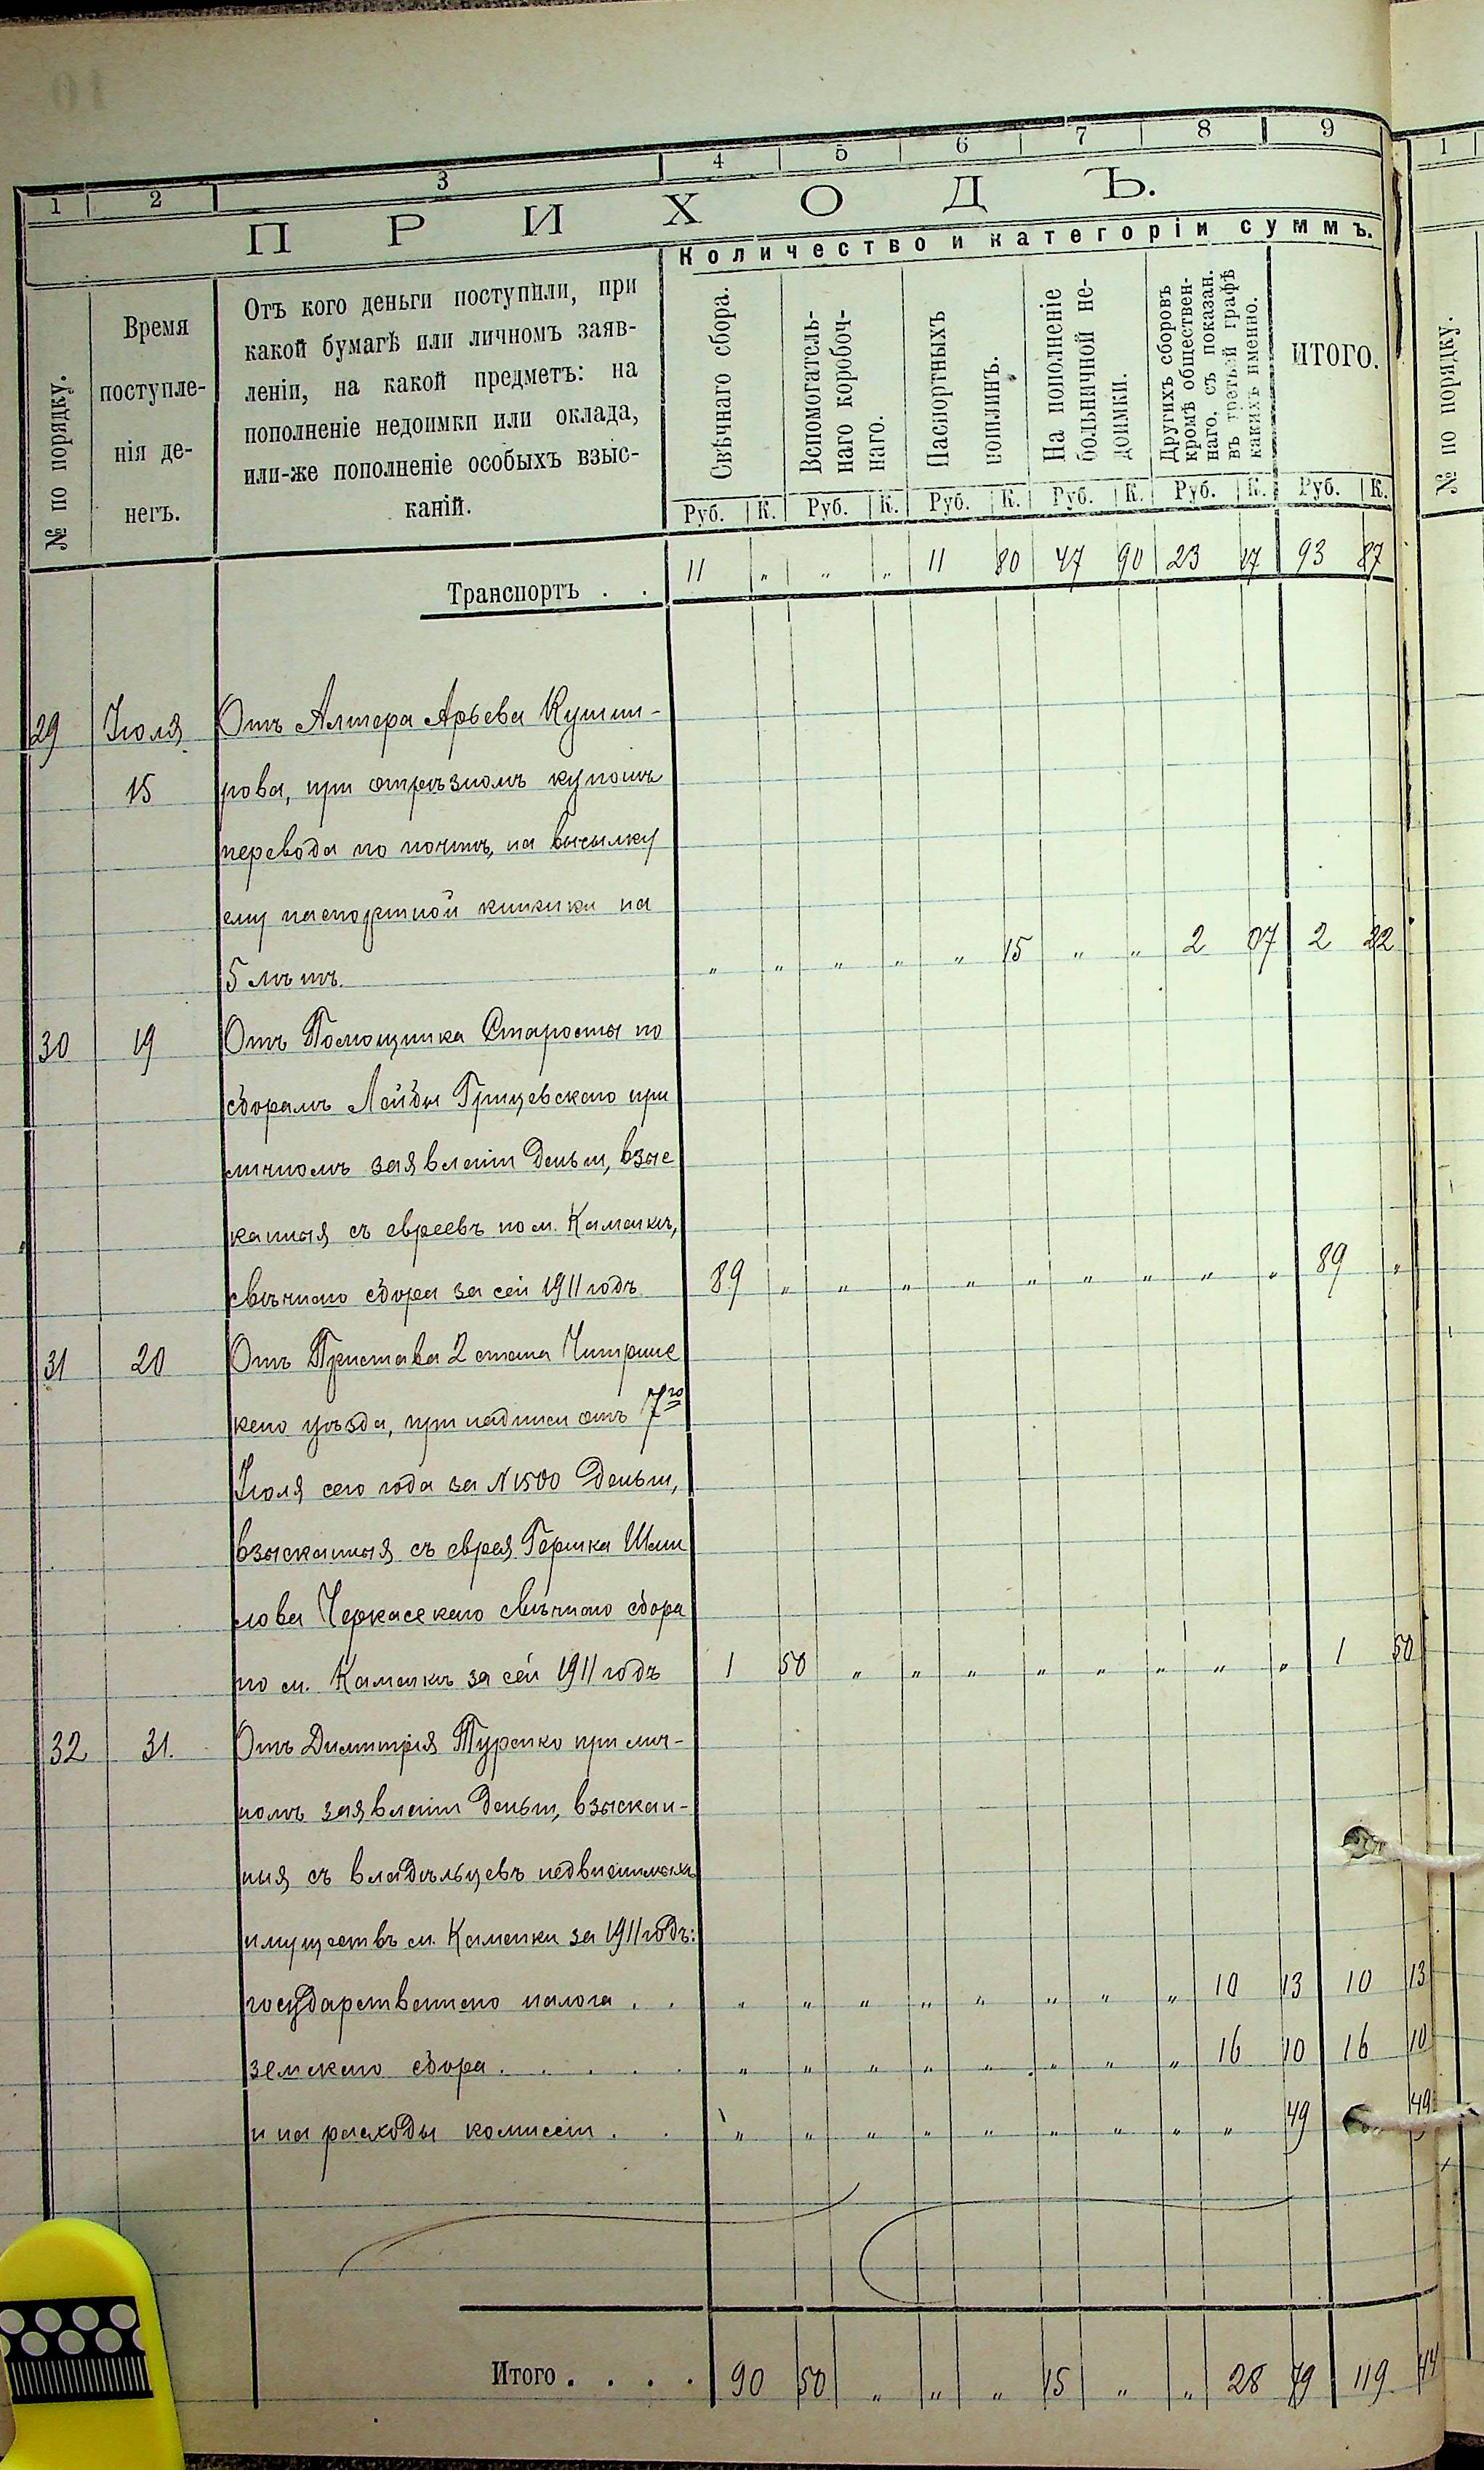 1 2 3 4 5 6 7 8 9
1
ПРИХОДЪ.
Количество и категоріи суммъ.
№ по порядку.
Время
поступле-
нія де-
негъ.
Отъ кого деньги поступили, при
какой бумагѣ или личномъ заяв-
леніи, на какой предметъ: на
пополненіе недоимки или оклада,
или-же пополненіе особыхъ взыс-
каній.
Свѣчнаго сбора.
Вспомогатель-
наго коробоч-
наго.
Паспортныхъ
пошлинъ.
На пополненіе
больничной не-
доимки.
Другихъ сборовъ
кромѣ обществен-
наго, съ показан.
въ третьей графѣ
какихъ именно.
ИТОГО.
№ по порядку.
Руб. К. Руб. К. Руб. К. Руб. К. Руб. К. Руб. К.
Транспортъ . . 11 " " " 11 80 47 90 23 17 93 87
29 Іюля Отъ Алтера Арьева Кушни-
15 рова, при отрѣзномъ купонѣ
перевода по почтѣ, на высылку
ему паспортной книжки на
5 лѣтъ. " " " " " 15 " " 2 07 2 22
30 19 Отъ Помощника Старосты по
сборамъ Лейбы Грицевскаго при
личномъ заявленіи деньги, взыс
канныя съ евреевъ по м. Каменкѣ,
свѣчнаго сбора за сей 1911 годъ 89 " " " " " " " " " 89 "
31 20 Отъ Пристава 2 стана Чигринс
каго уѣзда, при надписи отъ 7го
Іюля сего года за № 1500 деньги,
взысканныя съ еврея Гершка Шми
лова Черкасскаго свѣчнаго сбора
по м. Каменкѣ за сей 1911 годъ 1 50 " " " " " " " " 1 50
32 31. Отъ Димитрія Туренко при лич-
номъ заявленіи деньги, взыскан-
ныя съ владѣльцевъ недвижимыхъ
имуществъ м. Каменки за 1911 годъ:
государственнаго налога . . " " " " " " " " 10 13 10 13
земскаго сбора . . . . . " " " " " " " " 16 10 16 10
и на расходы комиссіи . . " " " " " " " " " 49 49
Итого . . . . 90 50 " " " 15 " " 28 79 119 44